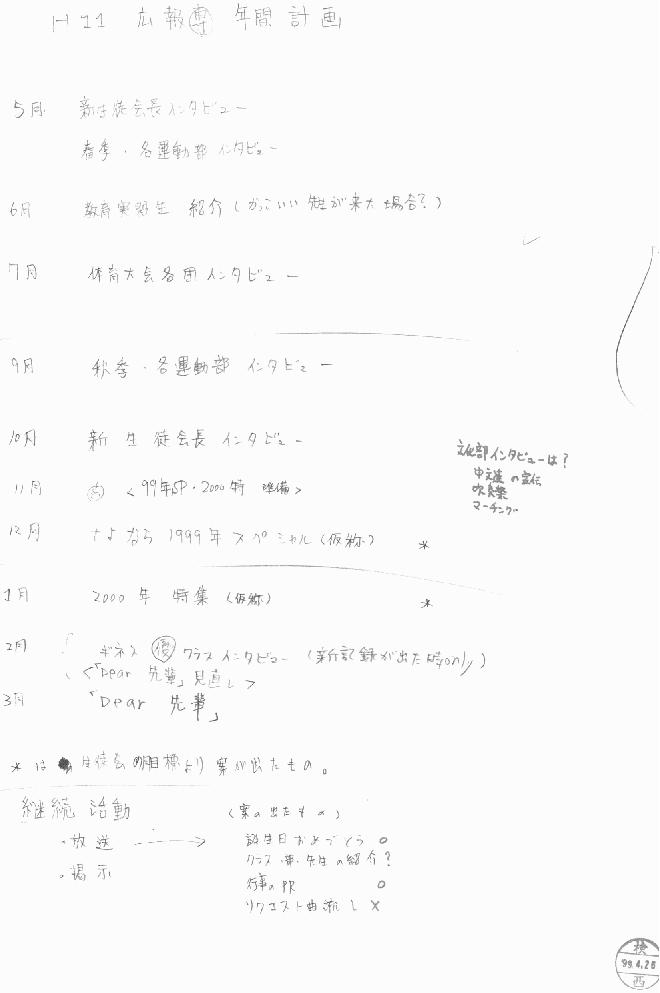 H11 広報専 年間計画
5月 新生徒会長インタビュー
春季・各運動部インタビュー
6月 教育実習生 紹介(かっこいい先生が来た場合?)
7月 体育大会各団インタビュー
9月 秋季・各運動部 インタビュー
10月 新生徒会長インタビュー
文化部インタビューは?
中文連の宣伝
吹奏楽
マーチング
11月 <99年SP・2000特 準備>
12月 さよなら1999年スペシャル(仮称) *
1月 2000年 特集(仮称) *
2月 ギネス 優 クラスインタビュー(新記録が出た時only)
<「Dear 先輩」見直し>
3月 「Dear 先輩」
*は 生徒会 目標より案が出たもの。
継続活動 (案の出たもの)
・放送 → 誕生日おめでとう ○
クラス・ 先生の紹介?
・掲示
行事のPR ○
リクエスト曲流し ×
検
99.4.26
西